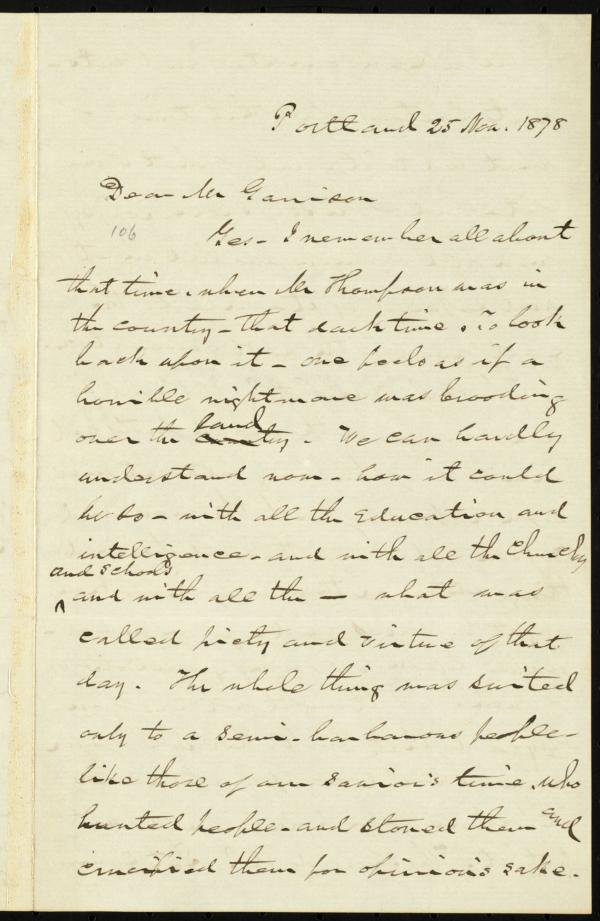 Portland 25 Nov. 1878
Dear Mr Garrison
106
Yes - I remember all about
that time, when Mr Thompson was in
the country - that dark time. To look
back upon it - one feels as if a
horrible nightmare was brooding
over the country land - We can hardly
understand now - how it could
be so - with all the education and
intelligence - and with all the churches
and schools
and with all the — what was
called piety and virtue of that
day. The whole thing was suited
only to a semi-barbarous people -
like those of our Savior's time, who
hunted people - and stoned them and
crucified them for opinions sake.